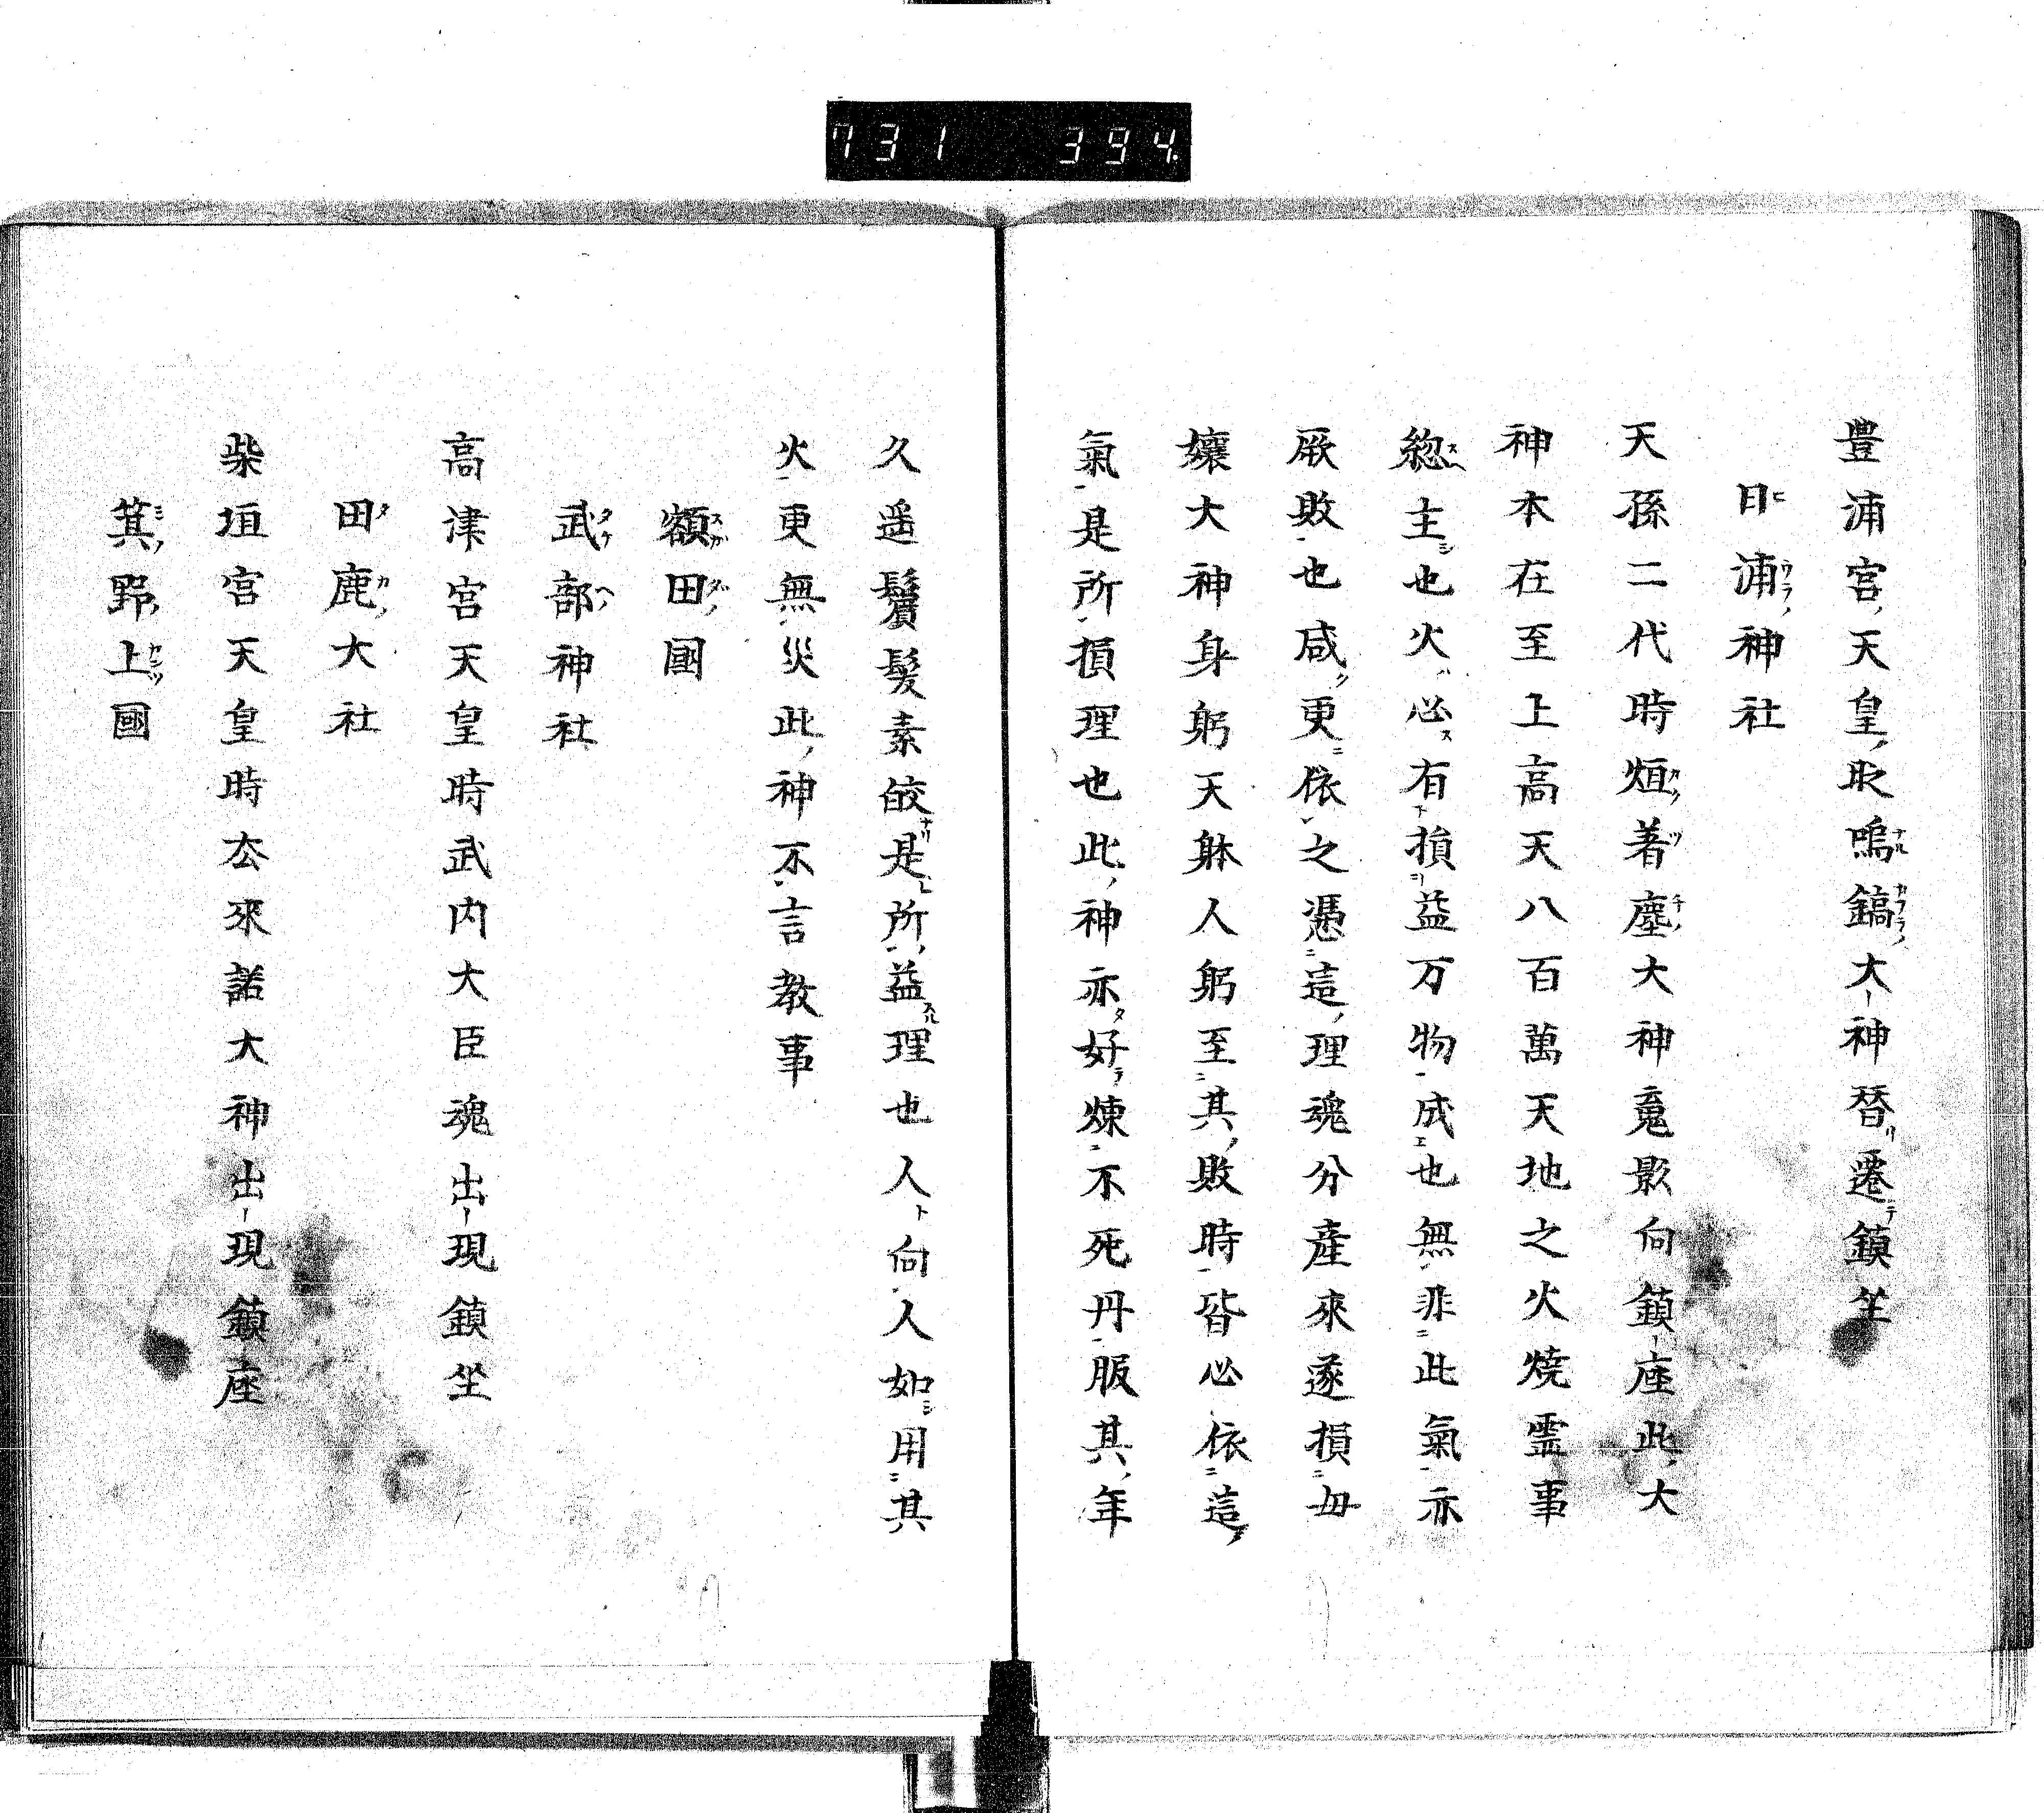 731 394
豊浦宮天皇取鳴鏑大神替遷鎮坐
日浦神社
天孫二代時烜著塵大神竟影向鎮座此大
神本在至上高天八百萬天地之火燒霊事
惣主也火必有損益万物成也無非此氣亦
厥敗也咸更依之憑這理魂分產來遂損毋
孃大神身躬天躰人躬至其敗時皆必依這
氣是所損理也此神亦好煉不死丹服其年
久遥鬢髮素皎是所益理也人向人如用其
火更無災此神不言教事
額田國
武部神社
高津宮天皇時武内大臣魂出現鎮坐
田鹿大社
柴垣宮天皇時太來諾大神出現鎮座
箕野上國